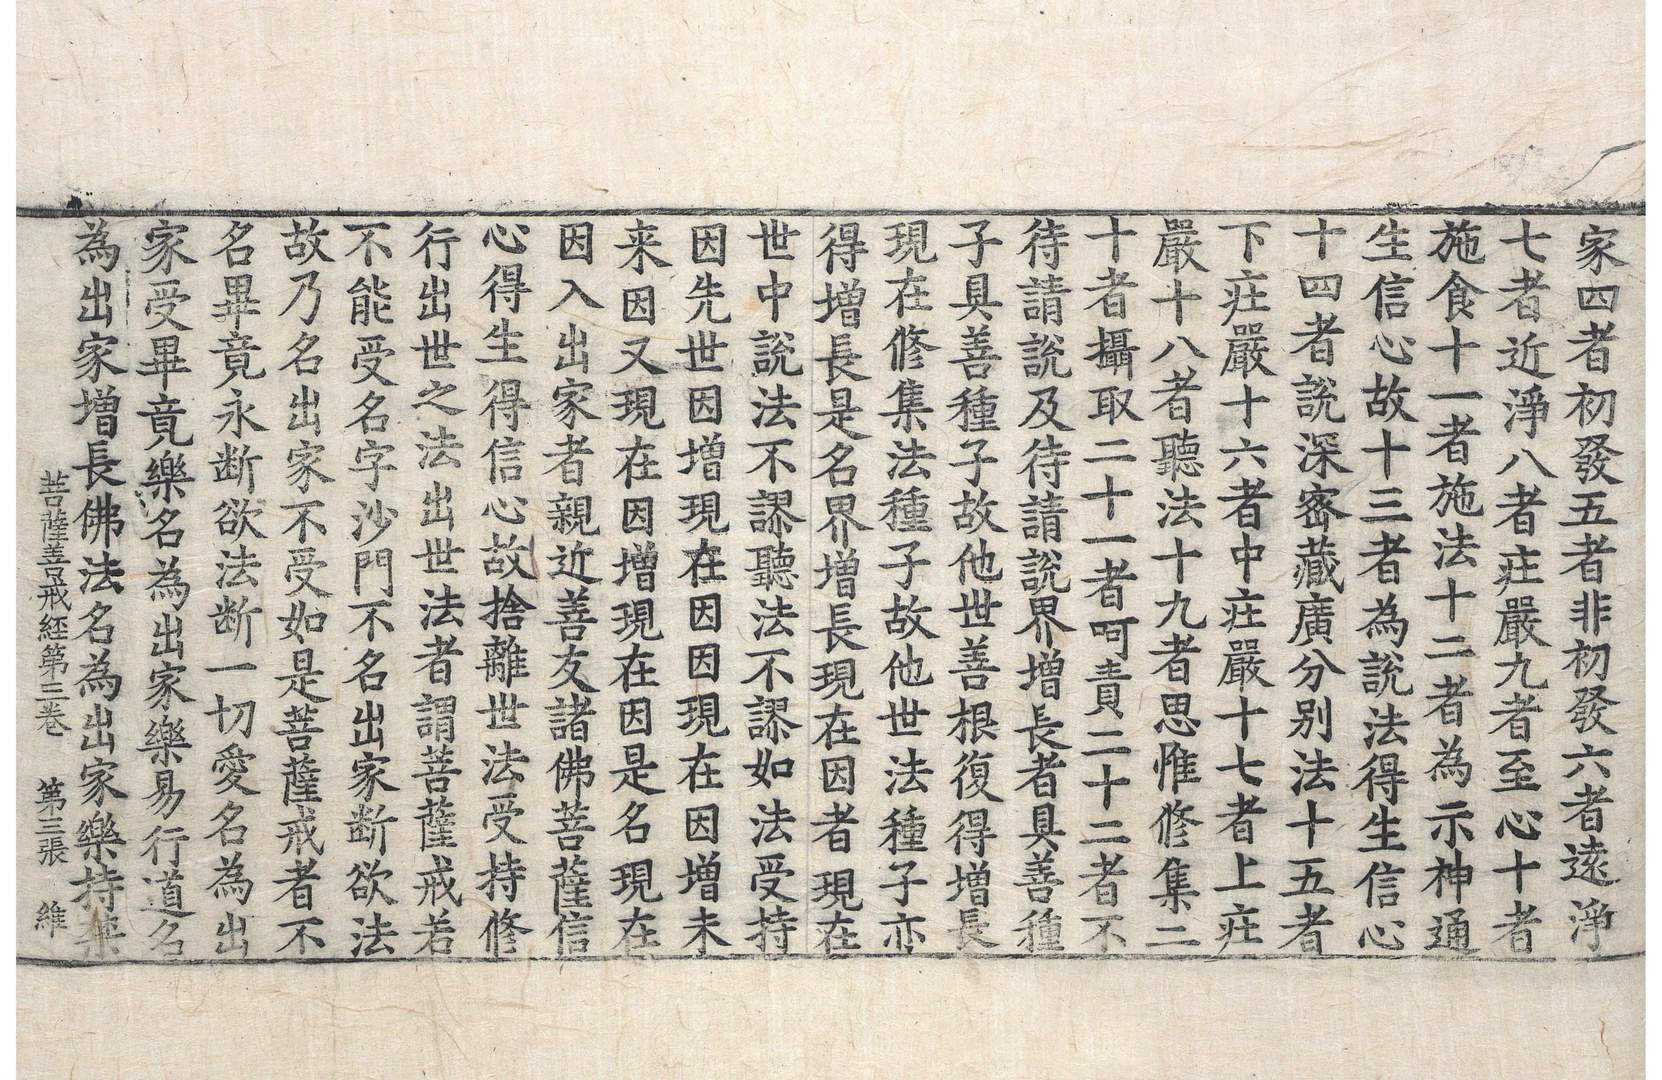 家四者初發五者非初發六者遠淨
七者近淨八者莊嚴九者至心十者
施食十一者施法十二者為示神通
生信心故十三者為說法得生信心
十四者說深密藏廣分別法十五者
下莊嚴十六者中莊嚴十七者上莊
嚴十八者聽法十九者思惟修集二
十者攝取二十一者呵責二十二者不
待請說及待請說界增長者具善種
子具善種子故他世善根復得增長
現在修集法種子故他世法種子亦
得增長是名界增長現在因者現在
世中說法不謬聽法不謬如法受持
因先世因增現在因因現在因增未
来因又現在因增現在因是名現在
因入出家者親近善友諸佛菩薩信
心得生得信心故捨離世法受持修
行出世之法出世法者謂菩薩戒若
不能受名字沙門不名出家断欲法
故乃名出家不受如是菩薩戒者不
名畢竟永断欲法断一切愛名為出
家受畢竟樂名為出家樂易行道名
為出家增長佛法名為出家樂持禁
菩薩善戒経第三卷　第三張　維